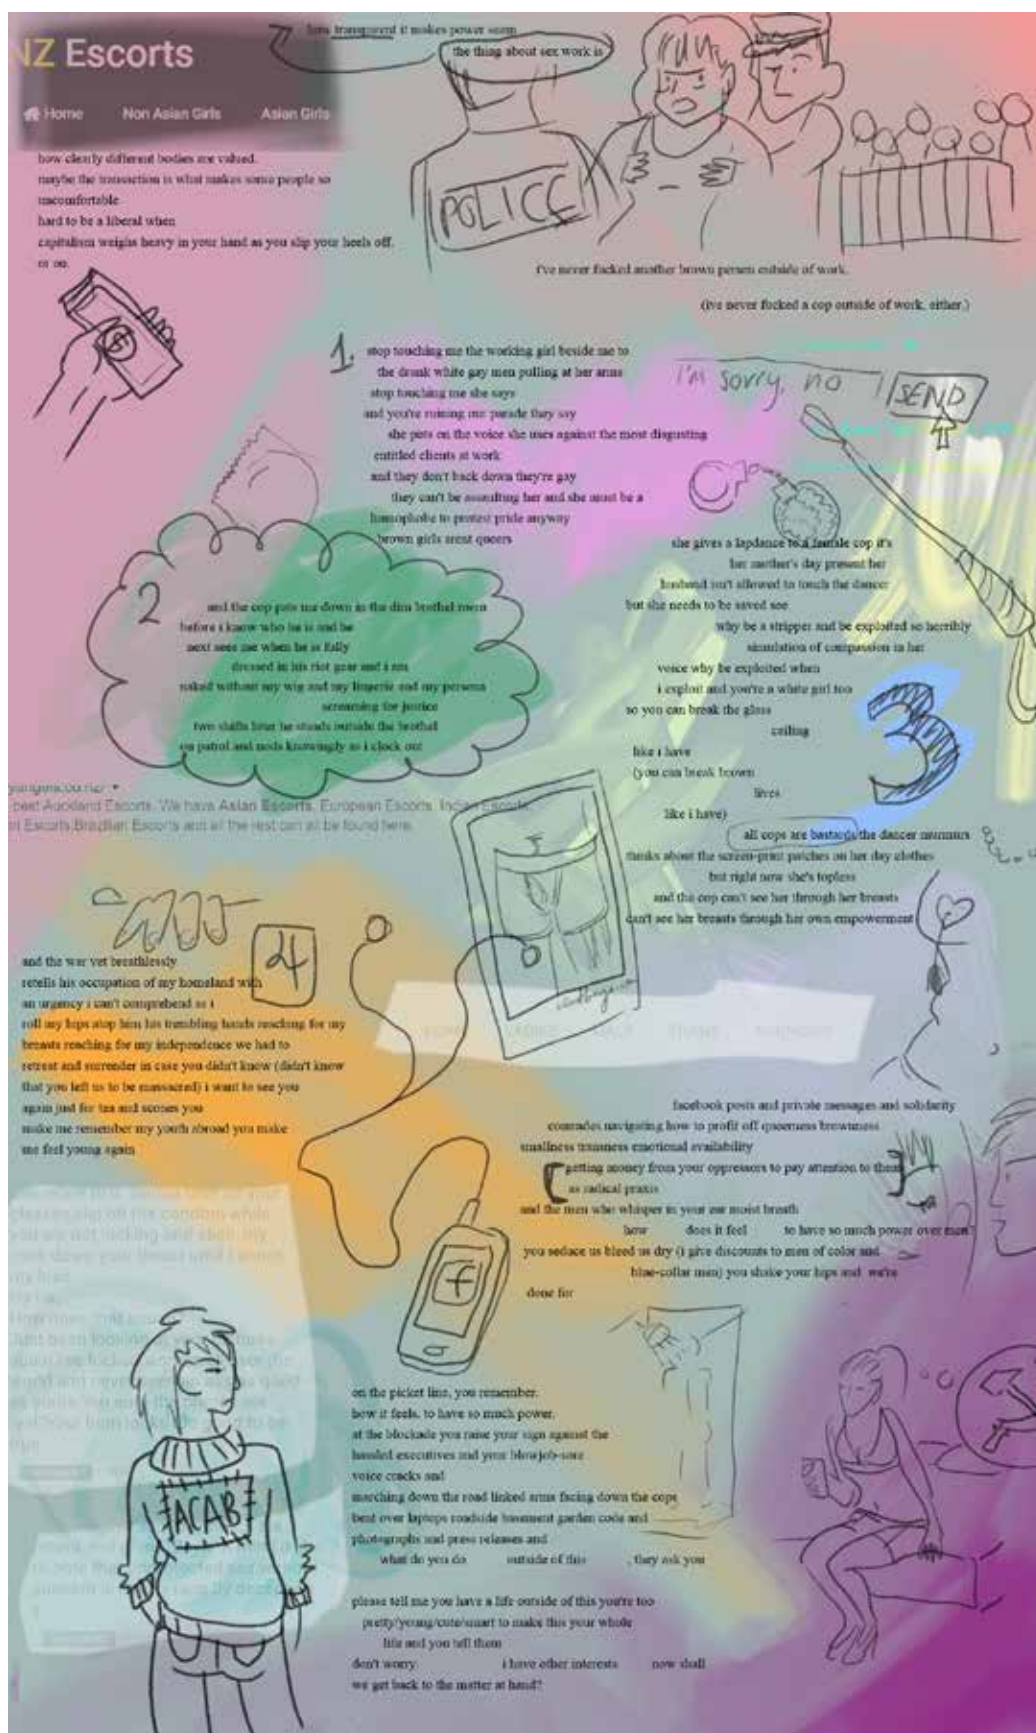 NZ Escorts
Home Non Asian Girls Asian Girls
how transparent it makes power seem
the thing about sex work is
how clearly different bodies are valued.
maybe the transaction is what makes some people so
uncomfortable
hard to be a liberal when
capitalism weighs heavy in your hand as you slip your heels off.
or on.
POLICE
i've never fucked another brown person outside of work.
(ive never fucked a cop outside of work, either.)
$
1.
stop touching me the working girl beside me to
the drunk white gay men pulling at her arms
stop touching me she says
and you're ruining my parade they say
she puts on the voice she uses against the most disgusting
entitled clients at work
and they don't back down they're gay
they can't be assaulting her and she must be a
homophobe to protest pride anyway
brown girls arent queers
I'm sorry, no
SEND
2
and the cop pats me down in the dim brothel room
before i know who he is and he
next sees me when he is fully
dressed in his riot gear and i am
naked without my wig and my lingerie and my persona
screaming for justice
two shifts later he stands outside the brothel
on patrol and nods knowingly as i clock out
she gives a lapdance to a female cop it's
her mother's day present her
husband isn't allowed to touch the dancer
but she needs to be saved see
why be a stripper and be exploited so horribly
simulation of compassion in her
voice why be exploited when
i exploit and you're a white girl too
so you can break the glass
ceiling
like i have
(you can break brown
lives
like i have)
3
all cops are bastards the dancer murmurs
thinks about the screen-print patches on her day clothes
but right now she's topless
and the cop can't see her through her breasts
can't see her breasts through her own empowerment
best Auckland Escorts. We have Asian Escorts, European Escorts, Indian Escorts,
Escorts, Brazilian Escorts and all the rest can all be found here.
4
and the war vet breathlessly
retells his occupation of my homeland with
an urgency i can't comprehend as i
roll my hips atop him his trembling hands reaching for my
breasts reaching for my independence we had to
retreat and surrender in case you didn't know (didn't know
that you left us to be massacred) i want to see you
again just for tea and scones you
make me remember my youth abroad you make
me feel young again
facebook posts and private messages and solidarity
comrades navigating how to profit off queerness brownness
smallness transness emotional availability
getting money from your oppressors to pay attention to them
as radical praxis
and the men who whisper in your ear moist breath
how does it feel to have so much power over men?
you seduce us bleed us dry (i give discounts to men of color and
blue-collar men) you shake your hips and we're
done for
f
ACAB
on the picket line, you remember.
how it feels, to have so much power.
at the blockade you raise your sign against the
executives and your blowjob-sore
voice cracks and
marching down the road linked arms facing down the cops
bent over laptops roadside basement garden code and
photographs and press releases and
what do you do outside of this , they ask you
please tell me you have a life outside of this you're too
pretty/young/cute/smart to make this your whole
life and you tell them
don't worry i have other interests now shall
we get back to the matter at hand?